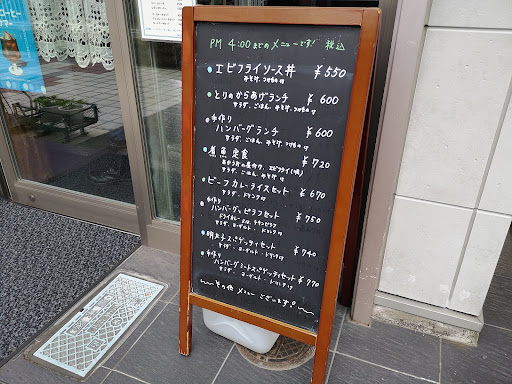 PM 4:00までのメニューです! 税込
エビフライソース丼 ¥550
みそ汁、つけもの付
とりのからあげランチ ¥600
サラダ、ごはん、みそ汁、つけもの付
手作り
ハンバーグランチ ¥600
サラダ、ごはん、みそ汁付
煮魚定食 ¥720
ビーフカレーライスセット ¥670
サラダ・ドリンク付
手作り
ハンバーグ、ピラフセット ¥750
サラダ・ヨーグルト・ドリンク付
明太子スパゲッティセット ¥740
サラダ・ヨーグルト・ドリンク付
手作り
ハンバーグミートスパゲッティセット ¥770
サラダ・ヨーグルト・ドリンク付
その他メニューございます!